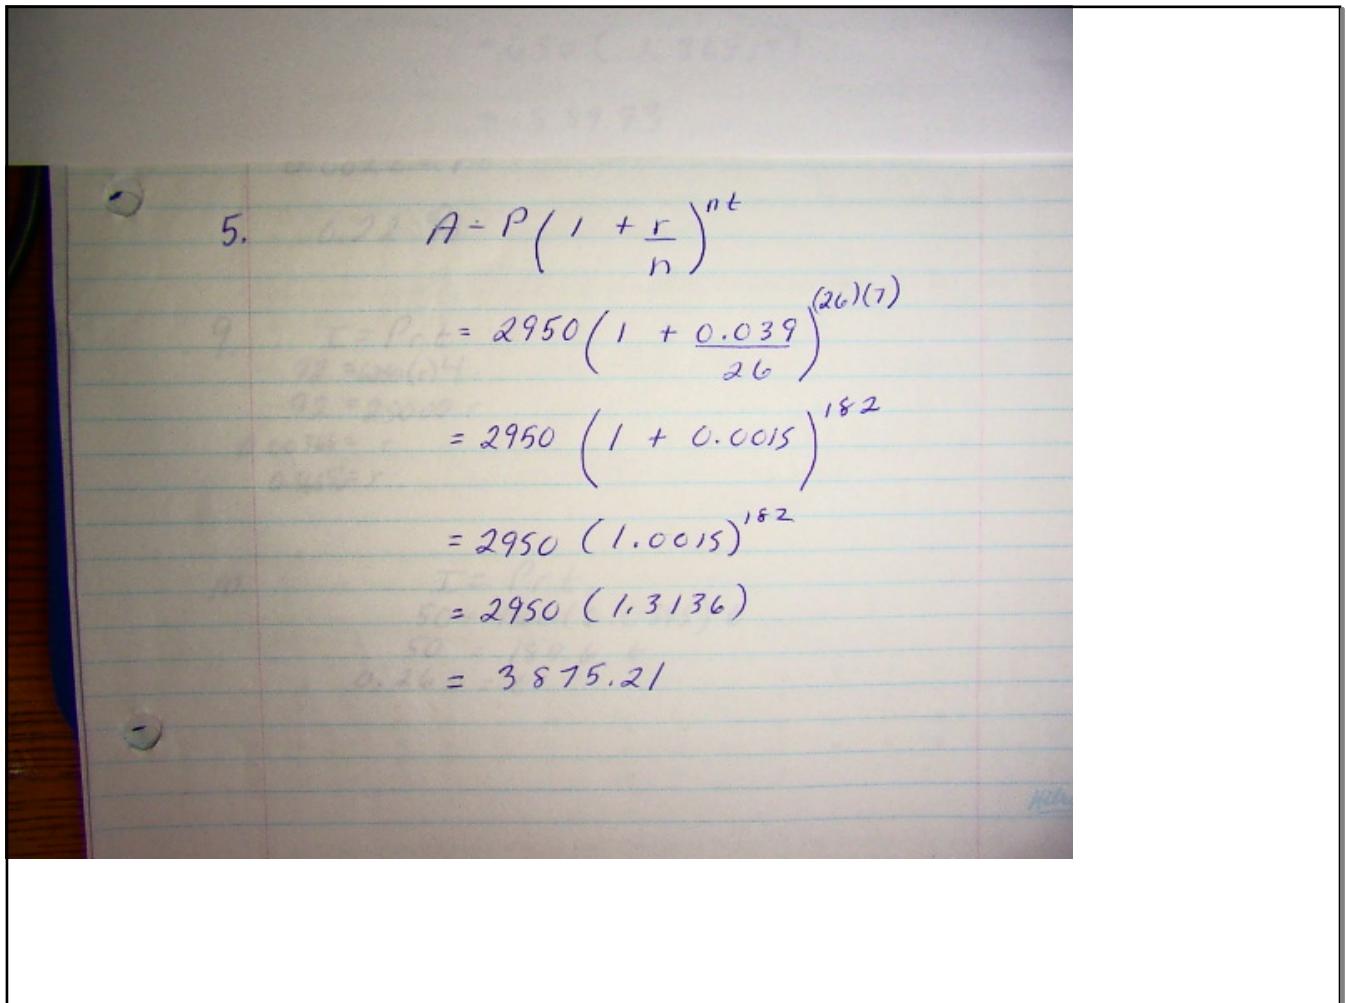 5. A = P(1 + r/n)^nt
= 2950(1 + 0.039/26)^(26)(7)
= 2950 (1 + 0.0015)^182
= 2950 (1.0015)^182
= 2950 (1.3136)
= 3875.21